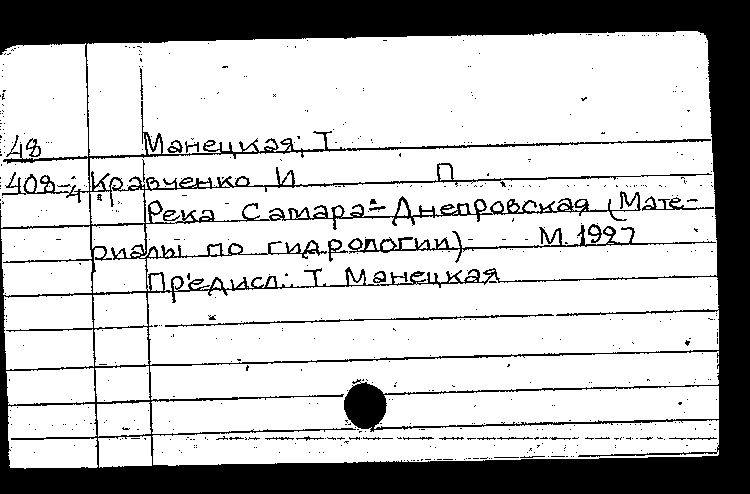 48 Манецкая, Т.
408-4 Кравченко, И П.
Река Самара-Днепровская (Мате-
риалы по гидрологии). М. 1927
Предисл.: Т. Манецкая